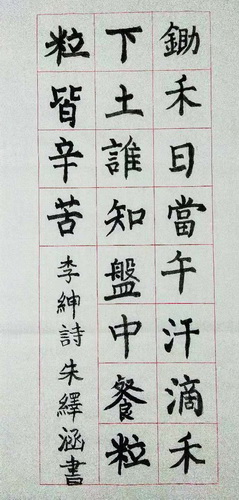 鋤禾日當午汗滴禾
下土誰知盤中餐粒
粒皆辛苦李紳詩朱繹涵書